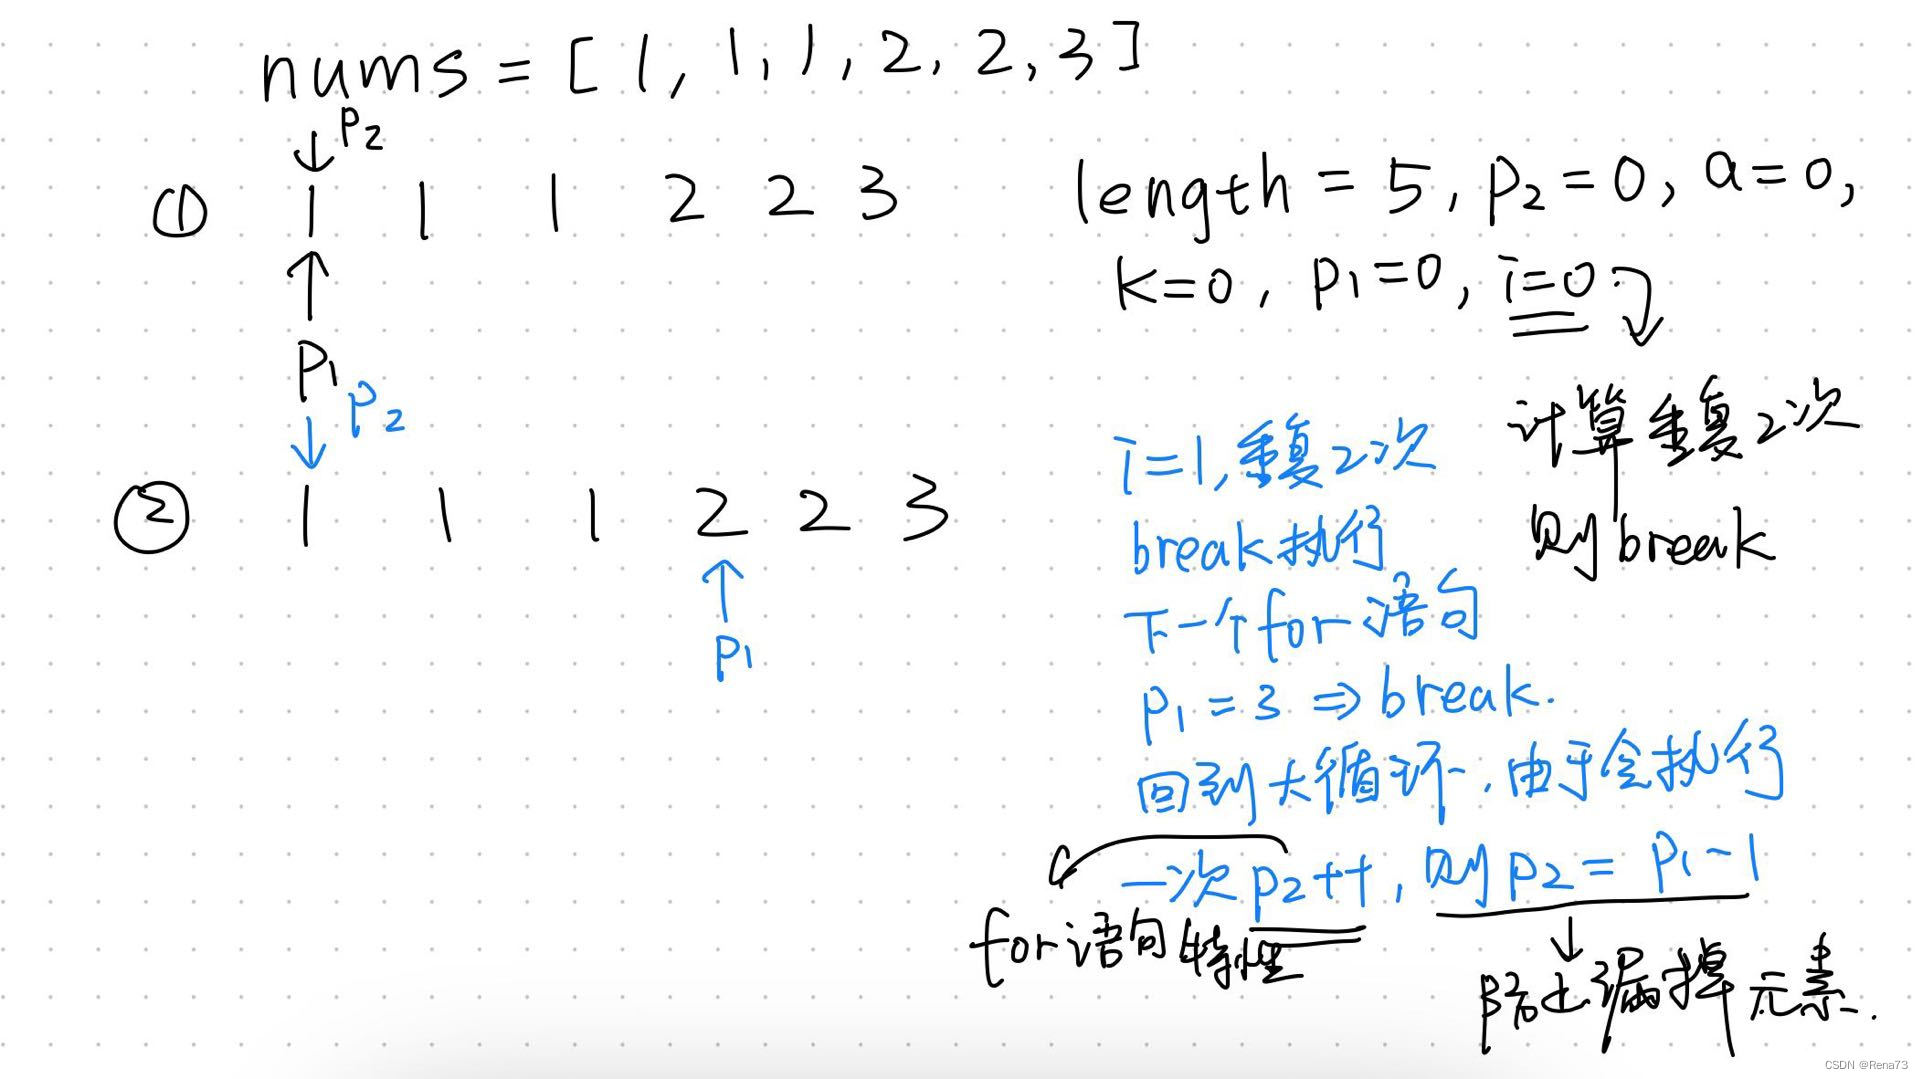 nums = [1, 1, 1, 2, 2, 3]
p2
① 1 1 1 2 2 3
p1
length = 5, p2 = 0, a = 0,
k = 0, p1 = 0, i = 0
计算重复2次
则break
p2
② 1 1 1 2 2 3
p1
i=1,重复2次
break执行
下一个for语句
p1 = 3 ⇒ break.
回到大循环,由于会执行
一次p2++,则p2 = p1-1
for语句特性
防止漏掉元素.
CSDN @Rena73